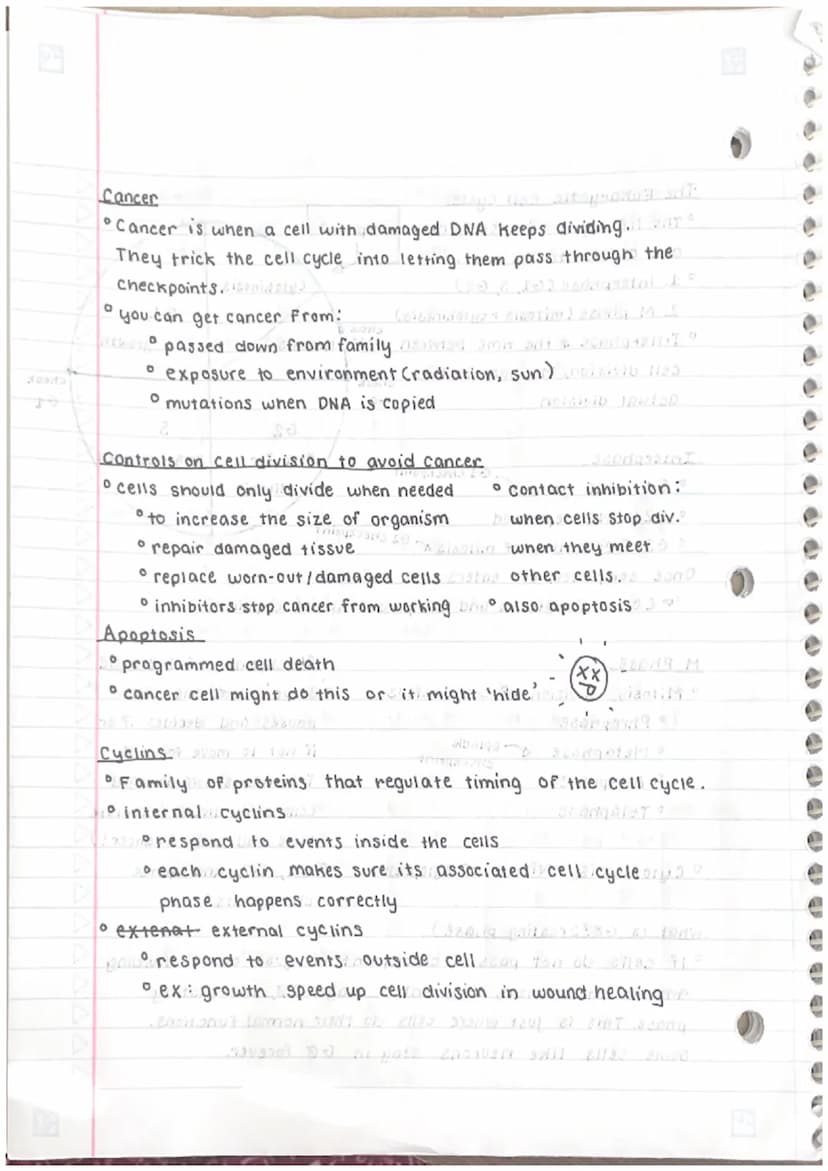 Cancer
° Cancer is when a cell with damaged DNA keeps dividing.
They trick the cell cycle into letting them pass through the
checkpoints.
° you can get cancer from:
° passed down from family
° exposure to environment (radiation, sun)
° mutations when DNA is copied
Controls on cell division to avoid cancer
° cells should only divide when needed
° to increase the size of organism
° repair damaged tissue
° replace worn-out/damaged cells
° inhibitors stop cancer from working
° contact inhibition:
when cells stop div.
when they meet
other cells.
° also apoptosis
Apoptosis
° programmed cell death
° cancer cell might do this or it might 'hide'
Cyclins
° Family of proteins that regulate timing of the cell cycle.
° internal cyclins
° respond to events inside the cells
° each cyclin makes sure its associated cell cycle
phase happens correctly
° external cyclins
° respond to events outside cell
° ex: growth speed up cell division in wound healing